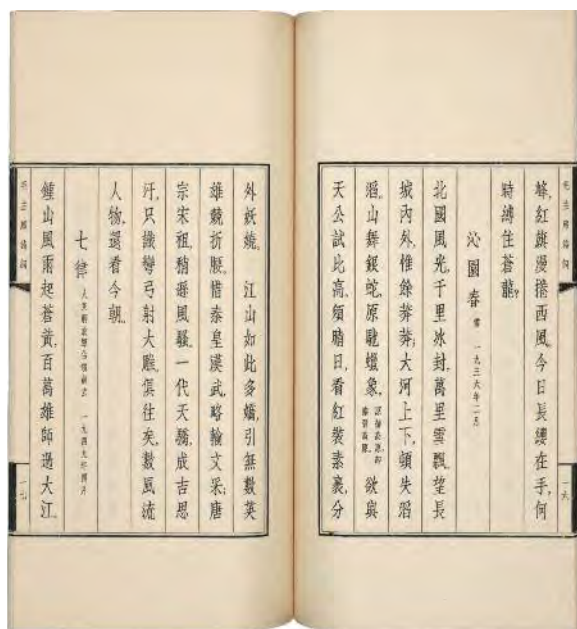 毛主席詩詞
峰,紅旗漫捲西風。今日長纓在手,何
時縛住蒼龍?
沁園春 雪 一九三六年二月
北國風光,千里冰封,萬里雪飄。望長
城內外,惟餘莽莽;大河上下,頓失滔
滔。山舞銀蛇,原馳蠟象,原指高原,即秦晉高原。欲與
天公試比高。須晴日,看紅裝素裹,分
一六
毛主席詩詞
外妖嬈。 江山如此多嬌,引無數英
雄競折腰。惜秦皇漢武,略輸文采;唐
宗宋祖,稍遜風騷。一代天驕,成吉思
汗,只識彎弓射大雕。俱往矣,數風流
人物,還看今朝。
七律 人民解放軍佔領南京 一九四九年四月
鍾山風雨起蒼黃,百萬雄師過大江。
一七